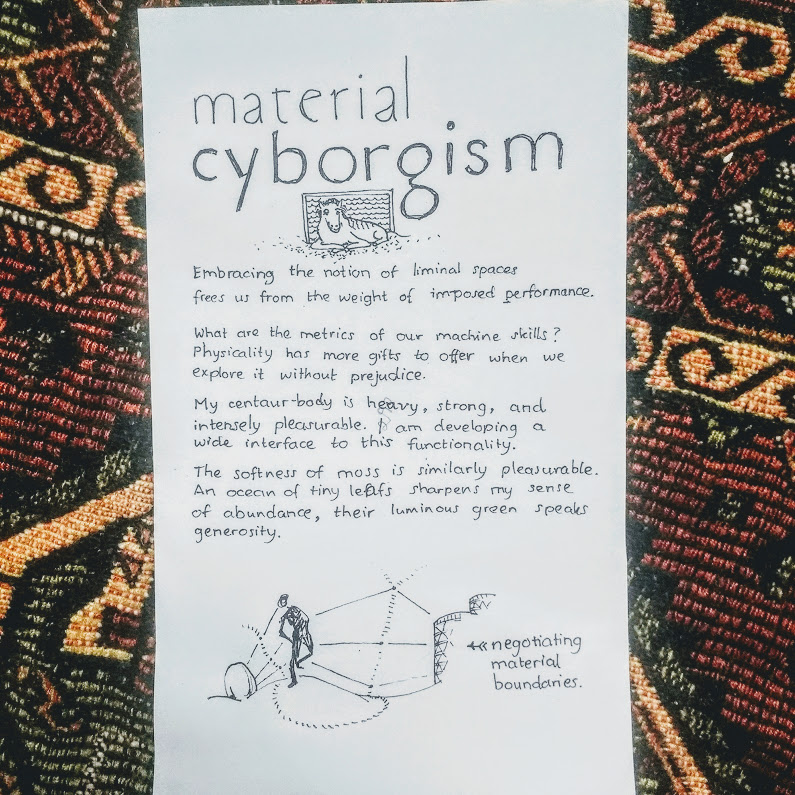 material
cyborgism
Embracing the notion of liminal spaces
frees us from the weight of imposed performance.
What are the metrics of our machine skills?
Physicality has more gifts to offer when we
explore it without prejudice.
My centaur-body is heavy, strong, and
intensely pleasurable. I am developing a
wide interface to this functionality.
The softness of moss is similarly pleasurable.
An ocean of tiny leafs sharpens my sense
of abundance, their luminous green speaks
generosity.
negotiating
material
boundaries.